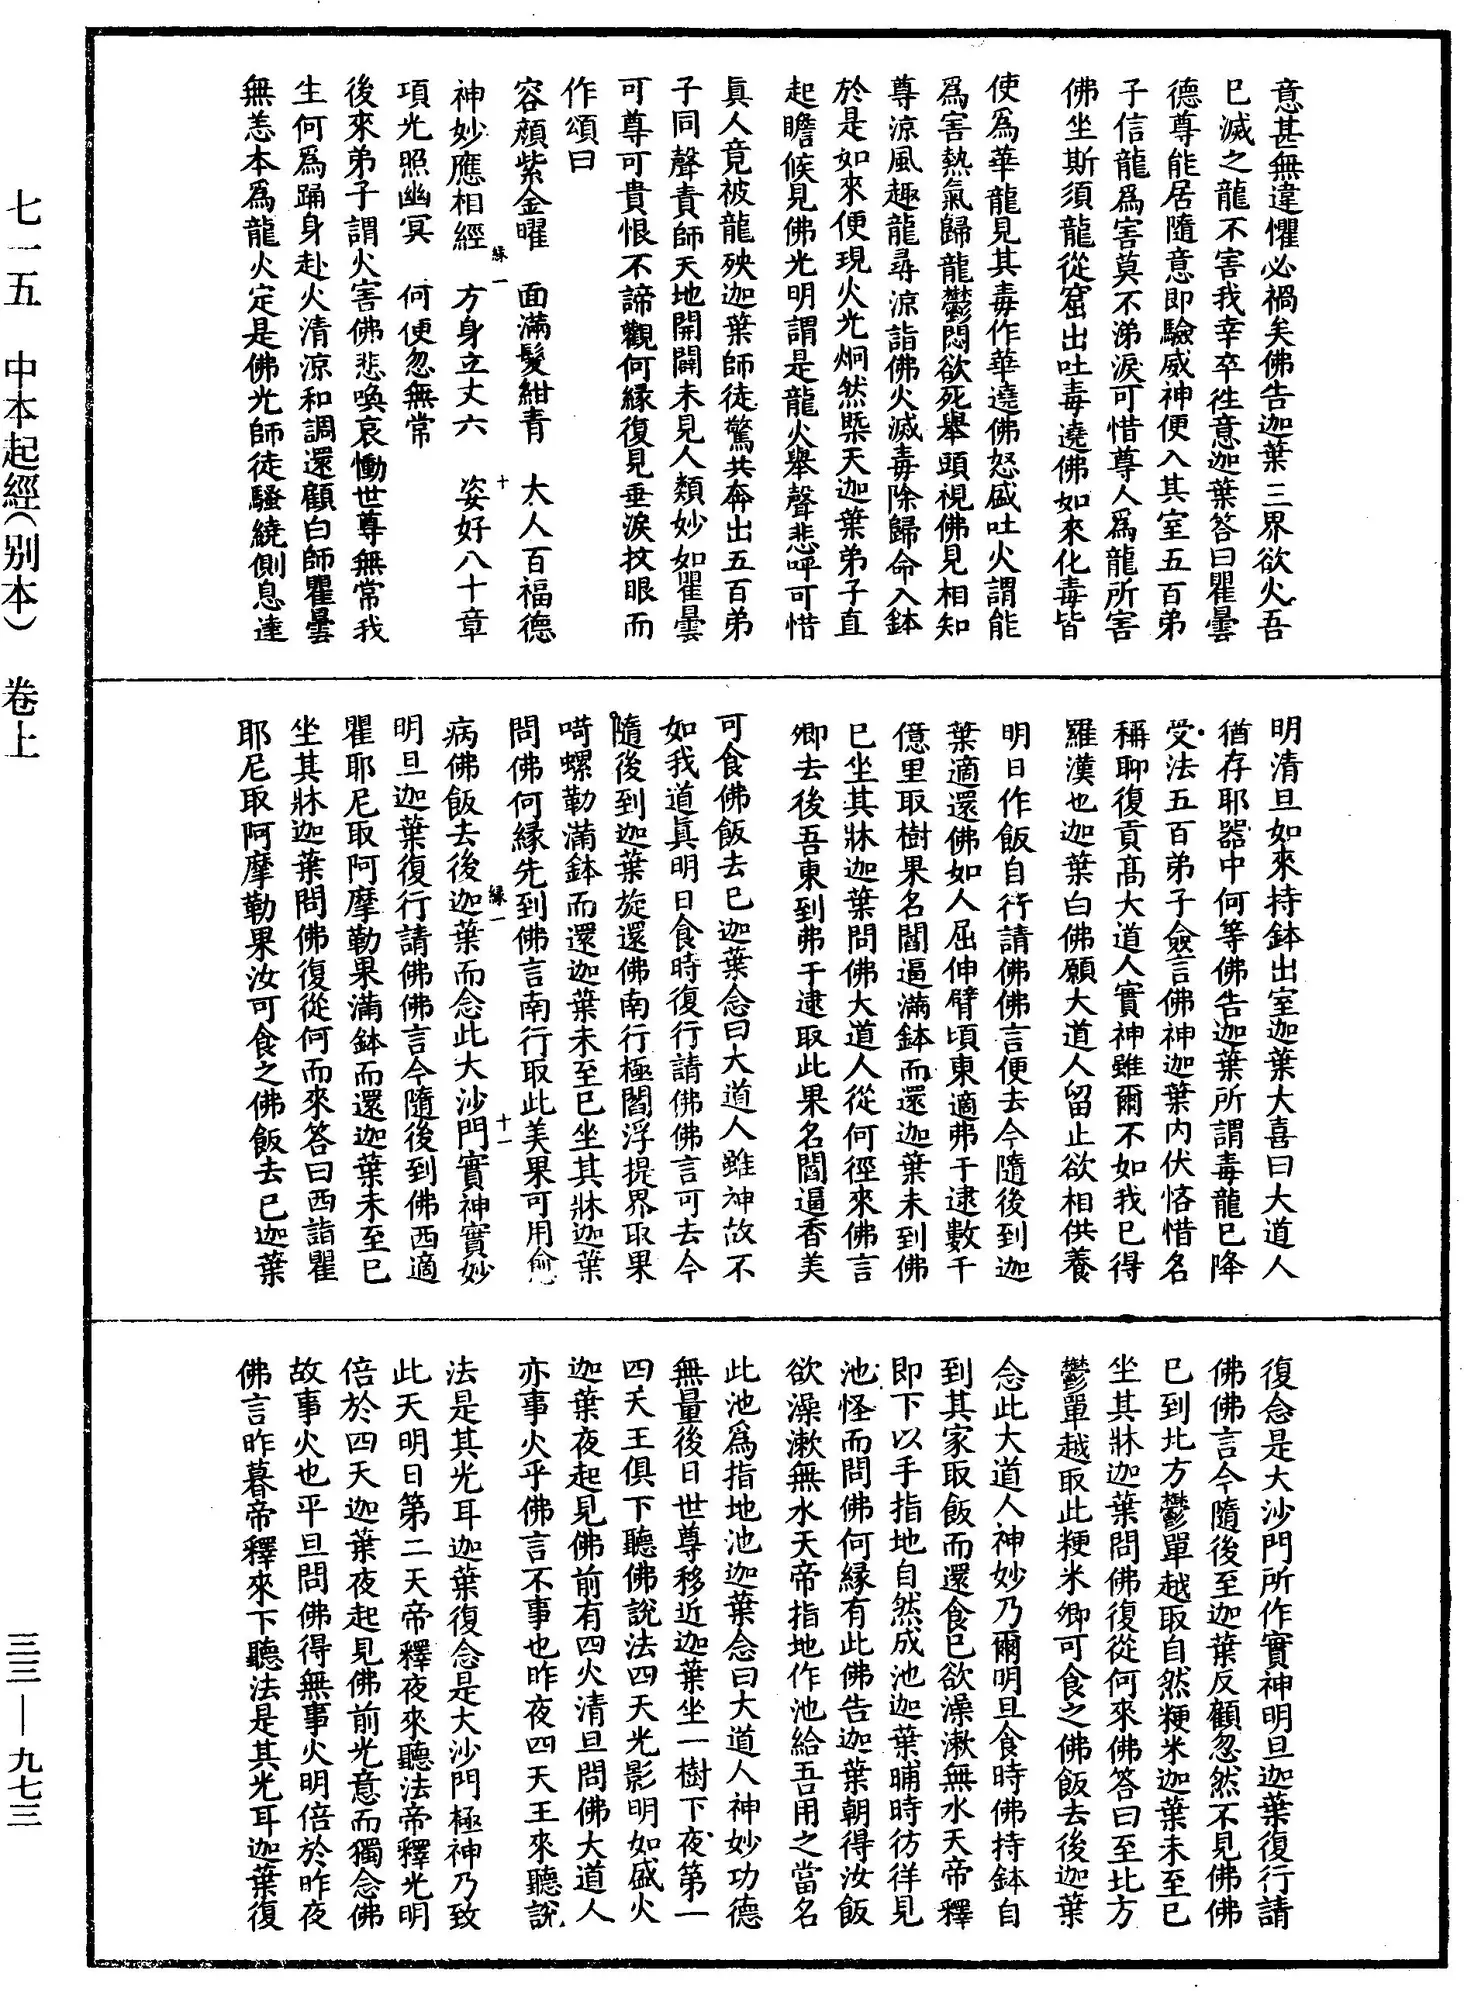 意甚無違懼必禍矣佛告迦葉三界欲火吾
巳滅之龍不害我幸卒徃意迦葉答曰瞿曇
德尊能居隨意即驗威神便入其室五百弟
子信龍爲害莫不涕淚可惜尊人爲龍所害
佛坐斯須龍從窟出吐毒遶佛如來化毒皆
使爲華龍見其毒作華遶佛怒盛吐火謂能
爲害熱氣歸龍鬱悶欲死舉頭視佛見相知
尊涼風趣龍尋涼詣佛火滅毒除歸命入鉢
於是如來便現火光烔然槩天迦葉弟子直
起瞻候見佛光明謂是龍火舉聲悲呼可惜
眞人竟被龍殃迦葉師徒驚共奔出五百弟
子同聲責師天地開闢未見人類妙如瞿曇
可尊可貴恨不諦觀何緣復見垂淚抆眼而
作頌曰
容顔紫金曜　面滿髮紺青　大人百福德
神妙應相經　方身立丈六　姿好八十章
項光照幽冥　何便忽無常
後來弟子謂火害佛悲喚哀慟世尊無常我
生何爲踊身赴火清涼和調還顧白師瞿曇
無恙本爲龍火定是佛光師徒騷繞側息達
明清旦如來持鉢出室迦葉大喜曰大道人
猶存耶器中何等佛告迦葉所謂毒龍巳降
受法五百弟子僉言佛神迦葉内伏悋惜名
稱聊復貢高大道人實神雖爾不如我巳得
羅漢也迦葉白佛願大道人留止欲相供養
明日作飯自行請佛佛言便去今隨後到迦
葉適還佛如人屈伸臂頃東適弗于逮數千
億里取樹果名閻逼滿鉢而還迦葉未到佛
巳坐其牀迦葉問佛大道人從何徑來佛言
卿去後吾東到弗于逮取此果名閻逼香美
可食佛飯去巳迦葉念曰大道人雖神故不
如我道眞明日食時復行請佛佛言可去今
隨後到迦葉旋還佛南行極閻浮提界取果
呵螺勒滿鉢而還迦葉未至巳坐其牀迦葉
問佛何緣先到佛言南行取此美果可用愈
病佛飯去後迦葉而念此大沙門實神實妙
明旦迦葉復行請佛佛言今隨後到佛西適
瞿耶尼取阿摩勒果滿鉢而還迦葉未至巳
坐其牀迦葉問佛復從何而來答曰西詣瞿
耶尼取阿摩勒果汝可食之佛飯去巳迦葉
復念是大沙門所作實神明旦迦葉復行請
佛佛言今隨後至迦葉反顧忽然不見佛佛
巳到北方鬱單越取自然粳米迦葉未至巳
坐其牀迦葉問佛復從何來佛答曰至北方
鬱單越取此粳米卿可食之佛飯去後迦葉
念此大道人神妙乃爾明旦食時佛持鉢自
到其家取飯而還食巳欲澡漱無水天帝釋
即下以手指地自然成池迦葉晡時彷徉見
池怪而問佛何緣有此佛告迦葉朝得汝飯
欲澡漱無水天帝指地作池給吾用之當名
此池爲指地池迦葉念曰大道人神妙功德
無量後日世尊移近迦葉坐一樹下夜第一
四天王俱下聽佛說法四天光影明如盛火
迦葉夜起見佛前有四火清旦問佛大道人
亦事火乎佛言不事也昨夜四天王來聽說
法是其光耳迦葉復念是大沙門極神乃致
此天明日第二天帝釋夜來聽法帝釋光明
倍於四天迦葉夜起見佛前光意而獨念佛
故事火也平旦問佛得無事火明倍於昨夜
佛言昨暮帝釋來下聽法是其光耳迦葉復
緣一
十
緣一
十一
七一五　中本起經(別本)　卷上
三三—九七三